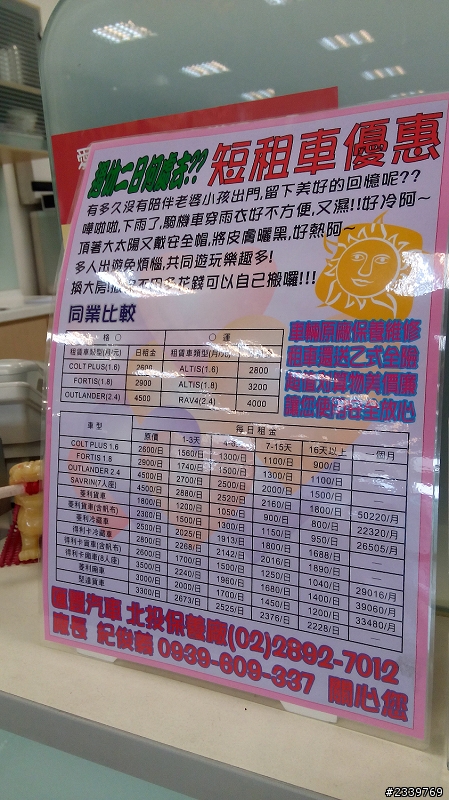 短租車優惠
有多久沒有陪伴老婆小孩出門,留下美好的回憶呢??
嘩啦啦,下雨了,騎機車穿雨衣好不方便,又濕!!好冷阿~
頂著大太陽又戴安全帽,將皮膚曬黑,好熱阿~
多人出遊免煩惱,共同遊玩樂趣多!
花錢可以自己搬囉!!!
同業比較
車輛原廠保養維修
讓您使用安全放心
格○ ○運
租賃車類型(月/元) 日租金 租賃車類型(月/元)
COLT PLUS(1.6) 2600 ALTIS(1.6) 2800
FORTIS(1.8) 2900 ALTIS(1.8) 3200
OUTLANDER(2.4) 4500 RAV4(2.4) 4000
車型 每日租金
原價 1-3天 7-15天 16天以上 一個月
COLT PLUS 1.6 2600/日 1560/日 1300/日 1100/日 900/日
FORTIS 1.8 2900/日 1740/日 1500/日 1100/日
OUTLANDER 2.4 4500/日 2700/日 2500/日 2000/日 1500/日
SAVRIN(7人座) 4800/日 2880/日 2520/日 2160/日 1800/日 50220/月
菱利貨車 1800/日 1200/日 1050/日 900/日 800/日 22320/月
菱利貨車(含帆布) 2300/日 1500/日 1300/日 1150/日 950/日 26505/月
菱利冷藏車 2500/日 2025/日 1913/日 1800/日 1688/日
得利卡冷藏車 2800/日 2268/日 2142/日 2016/日 1890/日
得利卡貨車(含帆布) 2600/日 1700/日 1500/日 1250/日 1040/日 29016/月
得利卡廂車(8人座) 3500/日 2240/日 1960/日 1680/日 1400/日 39060/月
菱利廂車 3000/日 2000/日 1700/日 1450/日 1200/日 33480/月
堅達貨車 3300/日 2673/日 2525/日 2376/日 2228/日
匯豐汽車 北投保養廠(02)2892-7012
廠長 紀俊華 0939-609-337 關心您
#2339769